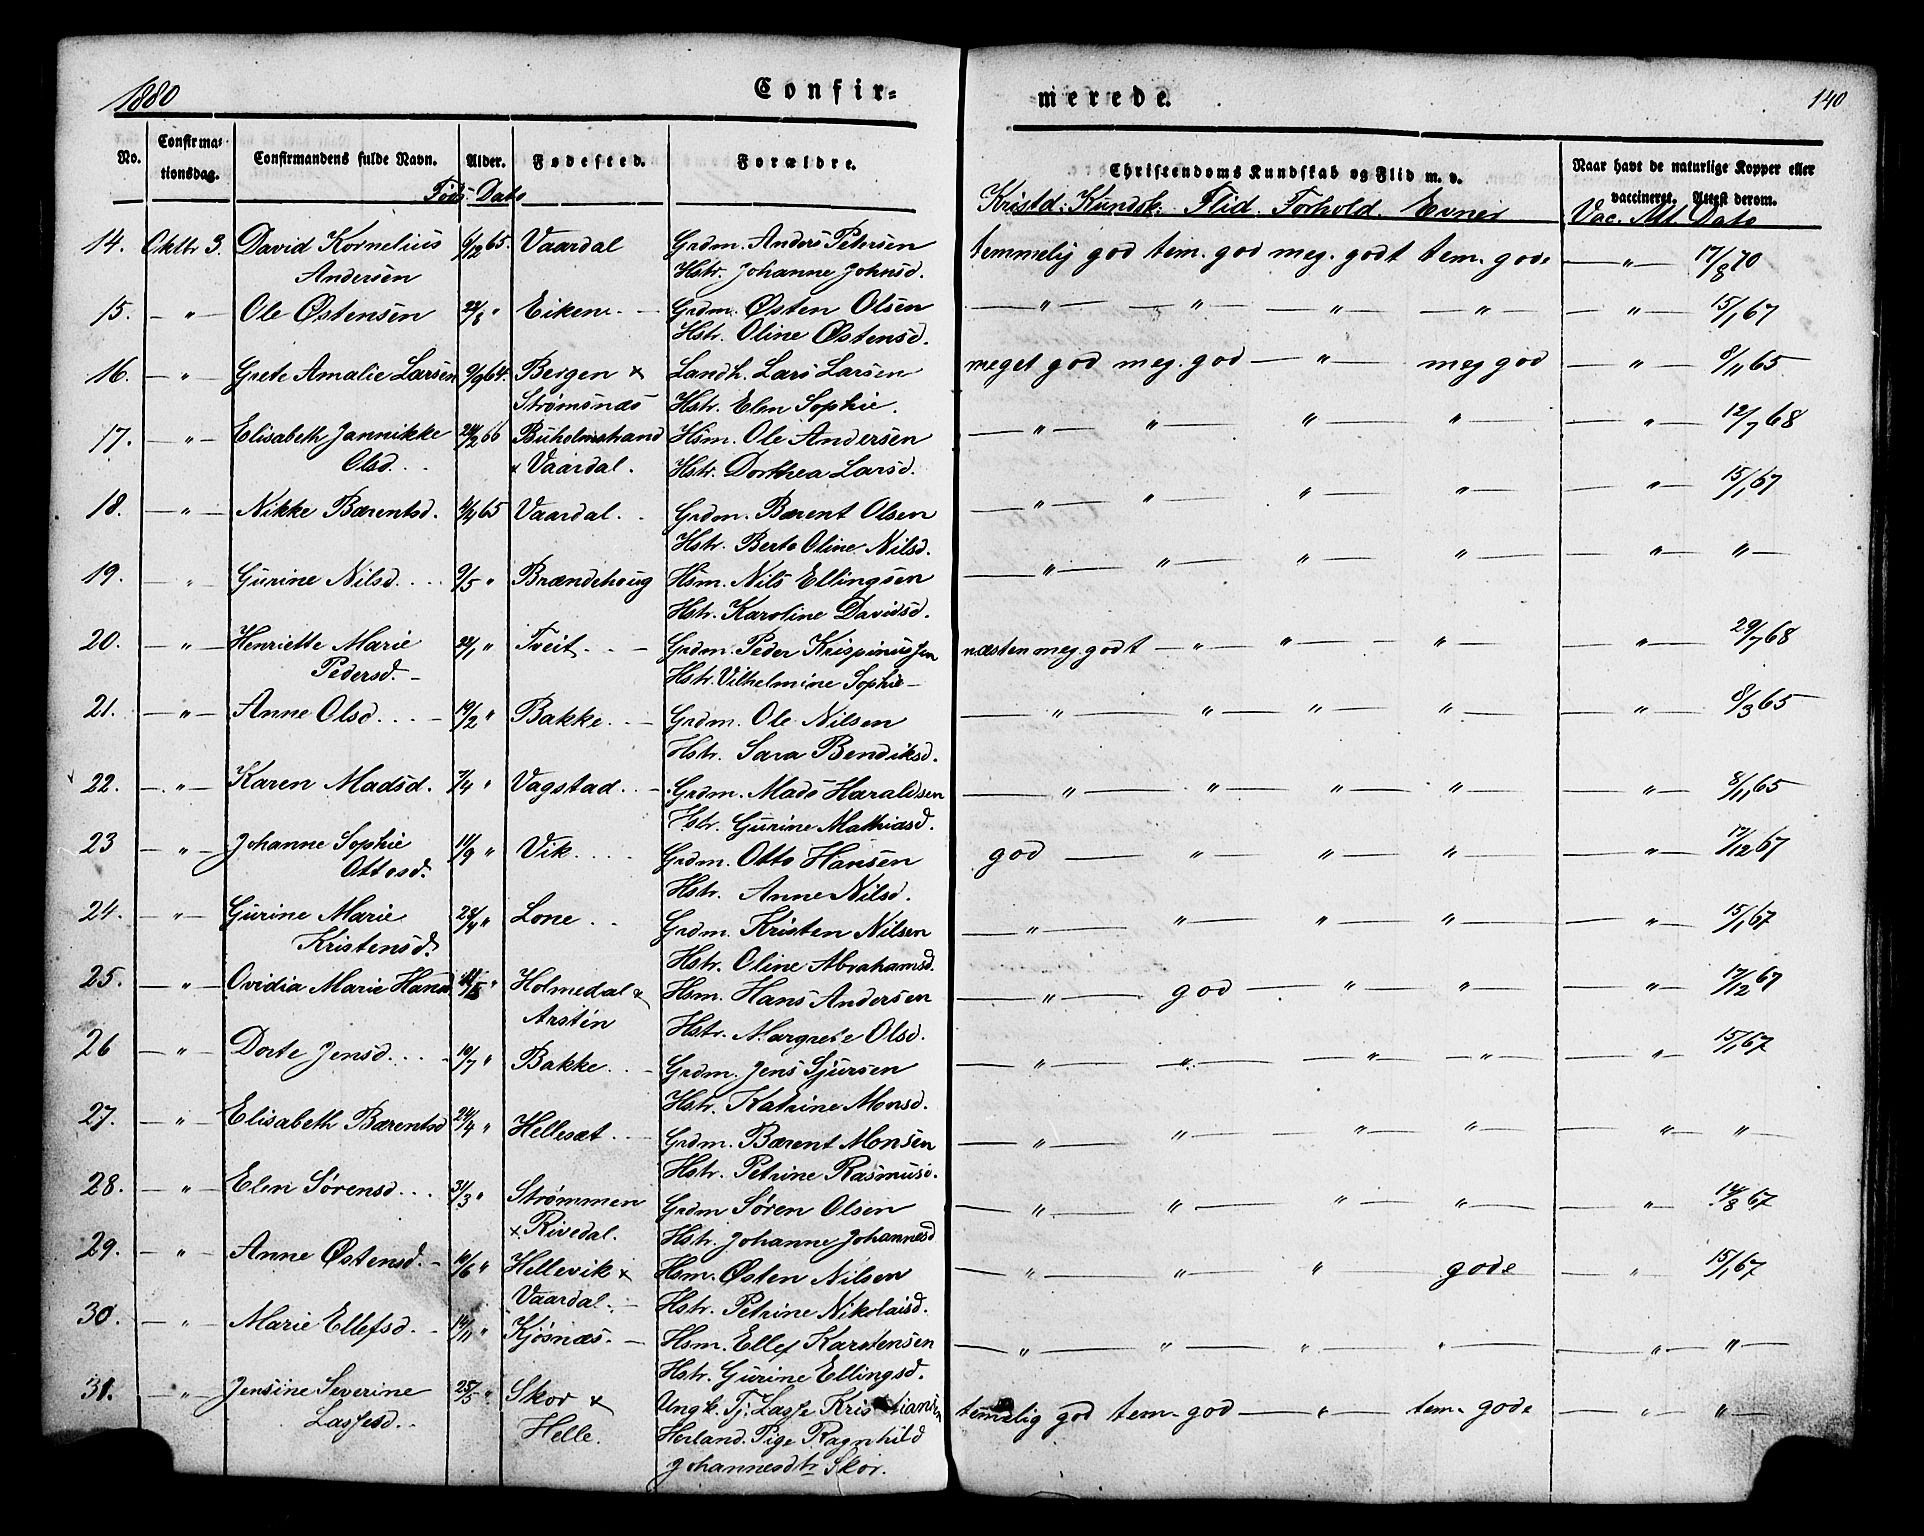 1880 Confirmerede. 140
No. Confirmationsdag. Confirmandens fulde Navn. Alder. Fødested. Forældre. Christendoms Kundskab og Flid m. v. Naar havt de naturlige Kopper eller vaccineret. Attest derom.
Føds. Dato Kristd. Kundsk. Flid. Forhold. Evner Vac. Att. Dato
14. Oktbr 3. David Kornelius 6/12 65. Vaardal Grdm. Anders Petersen temmelig god tem. god meg. godt tem. gode — " — 17/8 70
Andersen Hstr. Johanne Johnsd.
15. — " — Ole Østensen 22/8 " Eiken. — Grdm. Østen Olsen — " — — " — — " — — " — — " — 15/1 67
Hstr. Oline Østensd.
16. — " — Grete Amalie Larsen 9/9 64. Bergen × Landh. Lars Larsen meget god meg. god — " — meg god — " — 8/11 65
Strømsnæs Hstr. Elen Sophie.
17. — " — Elisabeth Jannikke 24/2 66 Buholmstrand Hsm. Ole Andersen — " — " — " — " — — " — 12/7 68
Olsd. . . × Vaardal. Hstr. Dorthea Larsd.
18. — " — Nikke Bærentsd. 4/4 65 Vaardal. . Grdm. Bærent Olsen — " — " — " — " — — " — 15/1 67
Hstr. Berte Oline Nilsd.
19. — " Gurine Nilsd. . . . 9/5 " Brændehoug Hsm. Nils Ellingsen — " — " — " — " — — " — " —
Hstr. Karoline Davidsd.
20. — " Henriette Marie 22/1 " Tveit. . . — Grdm. Peder Krispinussen næsten meg. godt — " — " — — " — " — 29/7 68
Pedersd. — Hstr. Vilhelmine Sophie —
21. — " — Anne Olsd. . . . — 19/2 " Bakke. . — Grdm. Ole Nilsen — " — " — " — " — — " — 8/3 65
Hstr. Sara Bendiksd.
22. — " — Karen Madsd. 7/4 " Vagstad. . — Grdm. Mads Haraldsen — " — " — " — " — — " — 8/11 65
Hstr. Gurine Mathiasd.
23 — " — Johanne Sophie 11/9 " Vik. . . . Grdm. Otto Hansen god — " — " — " — — " — 17/12 67
Ottosd. Hstr. Anne Nilsd.
24. — " — Gurine Marie 28/4 " Lone. . . Grdm. Kristen Nilsen — " — " — " — " — — " — 15/1 67
Kristensd. Hstr. Oline Abrahamsd.
25. — " — Ovidia Marie Hansd " Holmedal × Hsm. Hans Andersen — " — god — " — " — — " — 17/12 67
Arstén Hstr. Margrete Olsd.
26 — " — Dorte Jensd. . . . 10/7 " Bakke. . . — Grdm. Jens Sjursen — " — " — " — " — — " — 15/1 67
Hstr. Katrine Monsd.
27. — " — Elisabeth Bærentsd 24/4 " Hellesæt. — Grdm. Bærent Monsen — " — " — " — " — — " — " —
Hstr. Petrine Rasmusd.
28. — " — Elen Sørensd. . . . 31/3 " Strømmen Grdm Søren Olsen — " — " — " — " — — " — 14/8 67
× Rivedal. Hstr. Johanne Johannesd
29. — " Anne Østensd. — 16/6 " Hellevik × Hsm. Østen Nilsen — " — " — " gode — " — 15/1 67
Vaardal. — Hstr. Petrine Nikolaisd.
30. — " — Marie Ellefsd. — 14/11 " Kjøsnæs. — Hsm. Ellef Karstensen — " — " — " — " — — " — " —
Hstr. Gurine Ellingsd.
31. — " — Jensine Severine 25/5 " Skor × Ungk. Tj. Lasse Kristiansen temelig god tem. god — " — tem. gode — " — " —
Lassesd. . . Helle. Herland. Pige Ragnhild
Johannesdtr Skor.